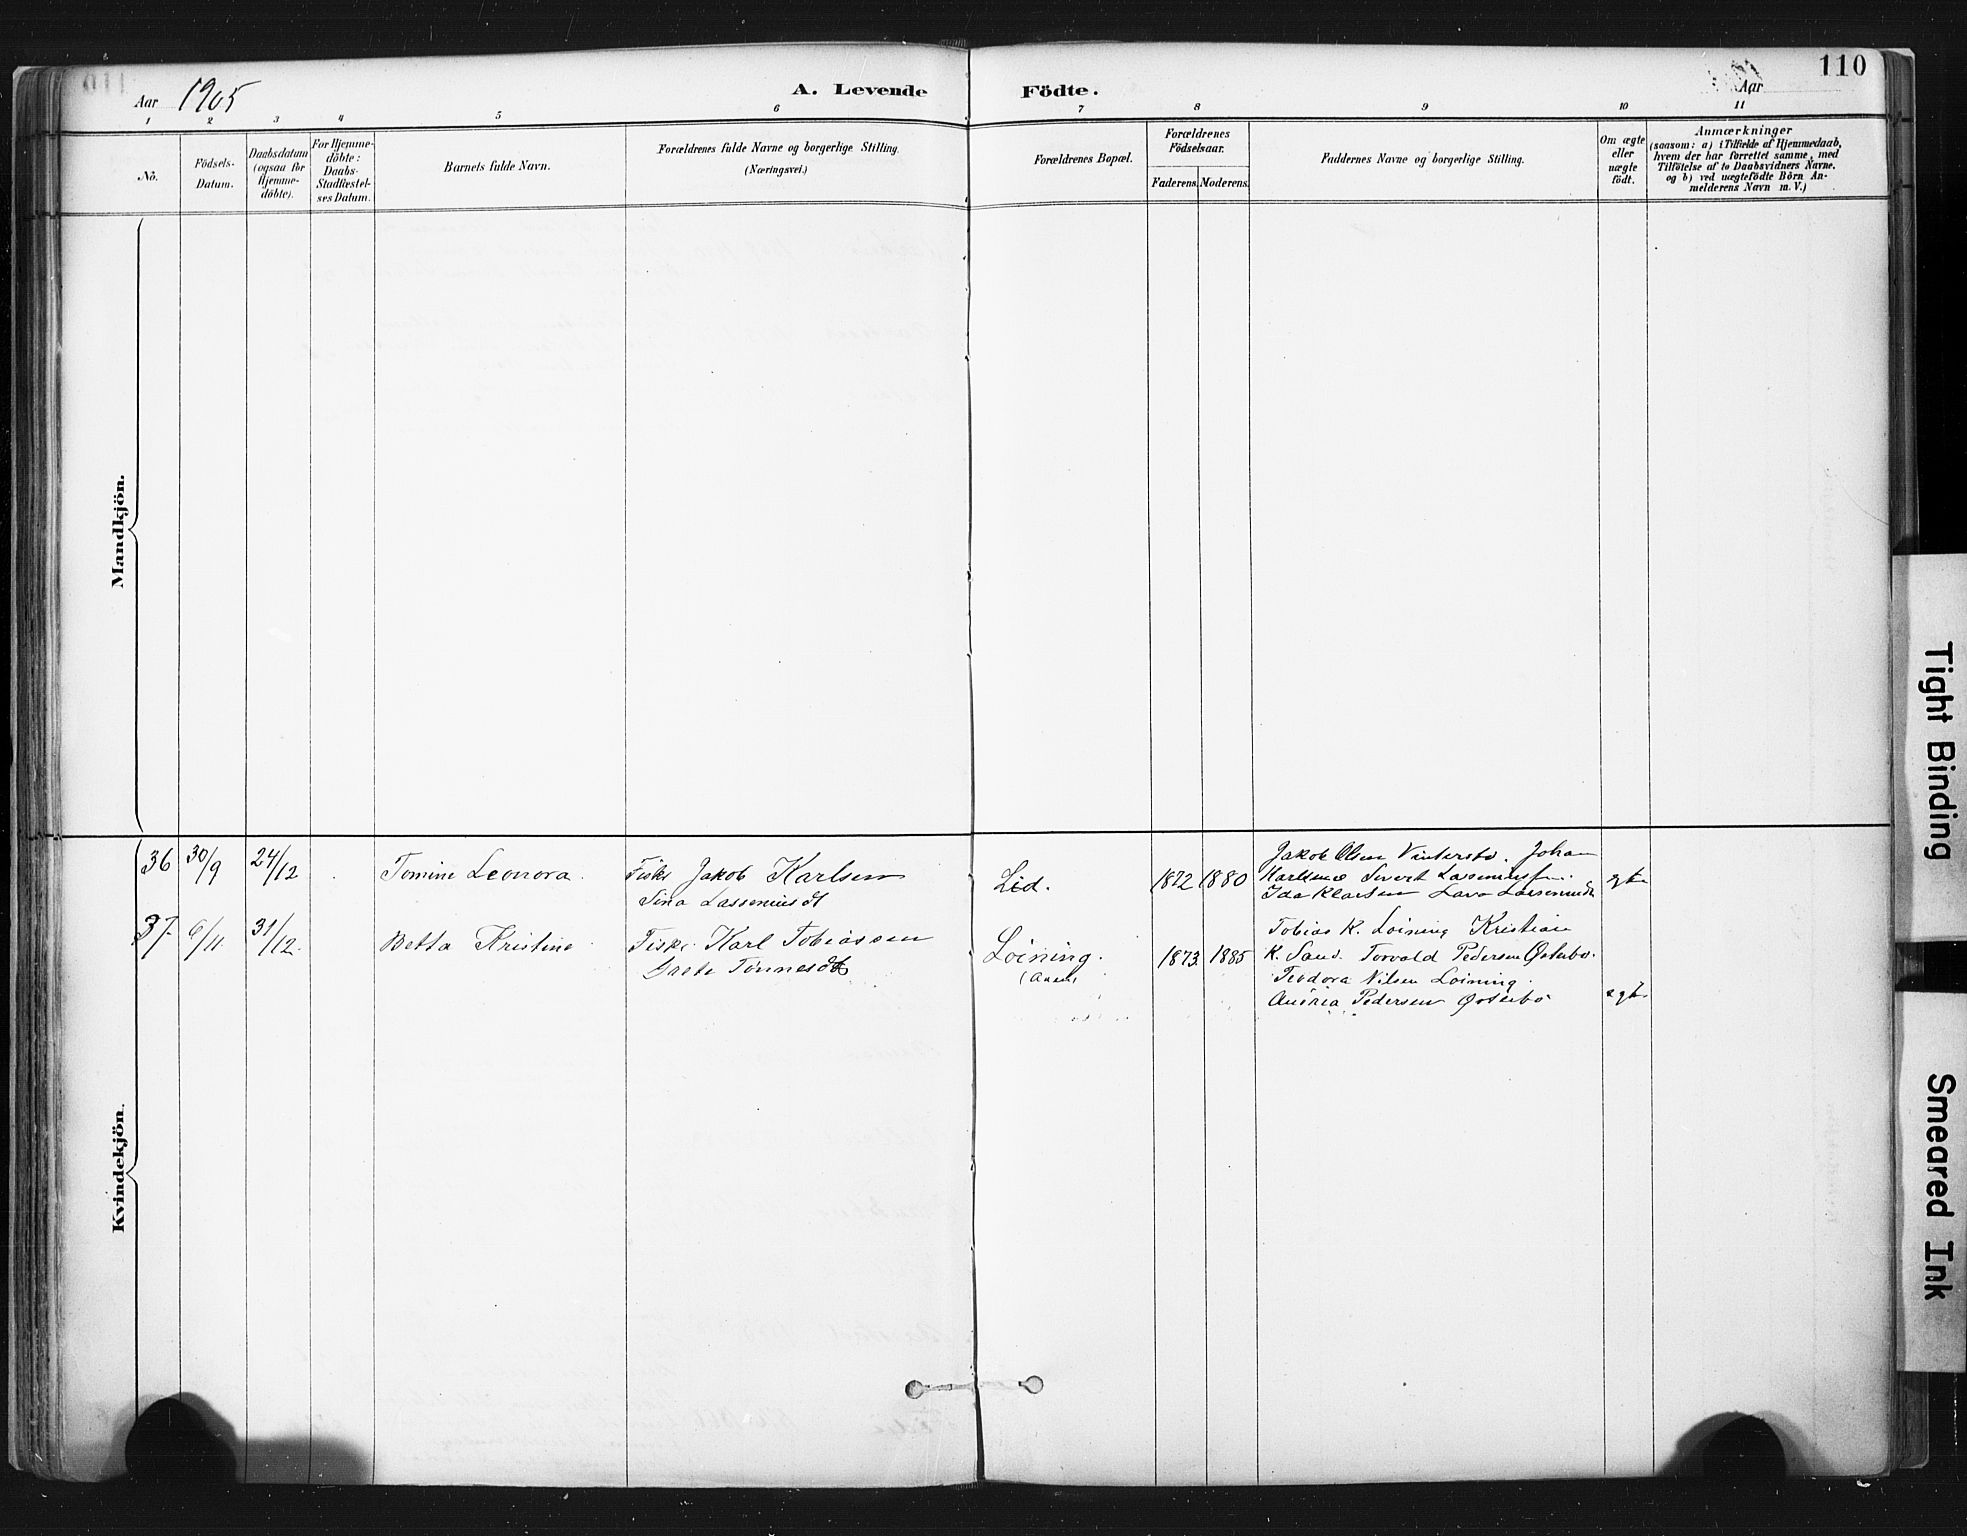 110
Aar 1905
A. Levende Födte.
Aar
1 2 3 4 5 6 7 8 9 10 11
No.
Födsels-
Datum.
Daabsdatum
(ogsaa for
Hjemme-
döbte).
For Hjemme-
döbte:
Daabs-
Stadfæstel-
ses Datum.
Barnets fulde Navn.
Forældrenes fulde Navne og borgerlige Stilling.
(Næringsvei.)
Forældrenes Bopæl.
Forældrenes
Födselsaar.
Faderens. Moderens.
Faddernes Navne og borgerlige Stilling.
Om ægte
eller
uægte
födt.
Anmærkninger
(saasom: a) i Tilfælde af Hjemmedaab,
hvem der har forrettet samme, med
Tilföielse af to Daabsvidners Navne.
og b) ved uægtefödte Börn An-
melderens Navn m. V.)
Mandkjön.
Kvindekjön.
36 30/9 24/12 Tomine Leonora.
Fisker Jakob Karlsen
Sina Lassenius dt
Lid.
1872 1880
Jakob Olsen Vintersto. Johan
Sivert
Ida Klarsen
egte
37 6/11 31/12 Betta Kristine
Fisker Karl Tobiassen
Grete Tönnesdt
Loining.
1873 1885
Tobias K. Loining Kristian
K. Sand. Torvald Pedersen Østebø.
Teodora Nilsen Loining.
Pedersen Østebø
egte
Tight Binding
Smeared Ink